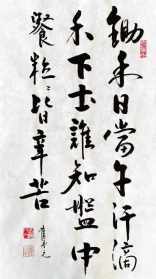 鋤禾日當午汗滴
禾下土誰知盤中
餐粒〻皆辛苦